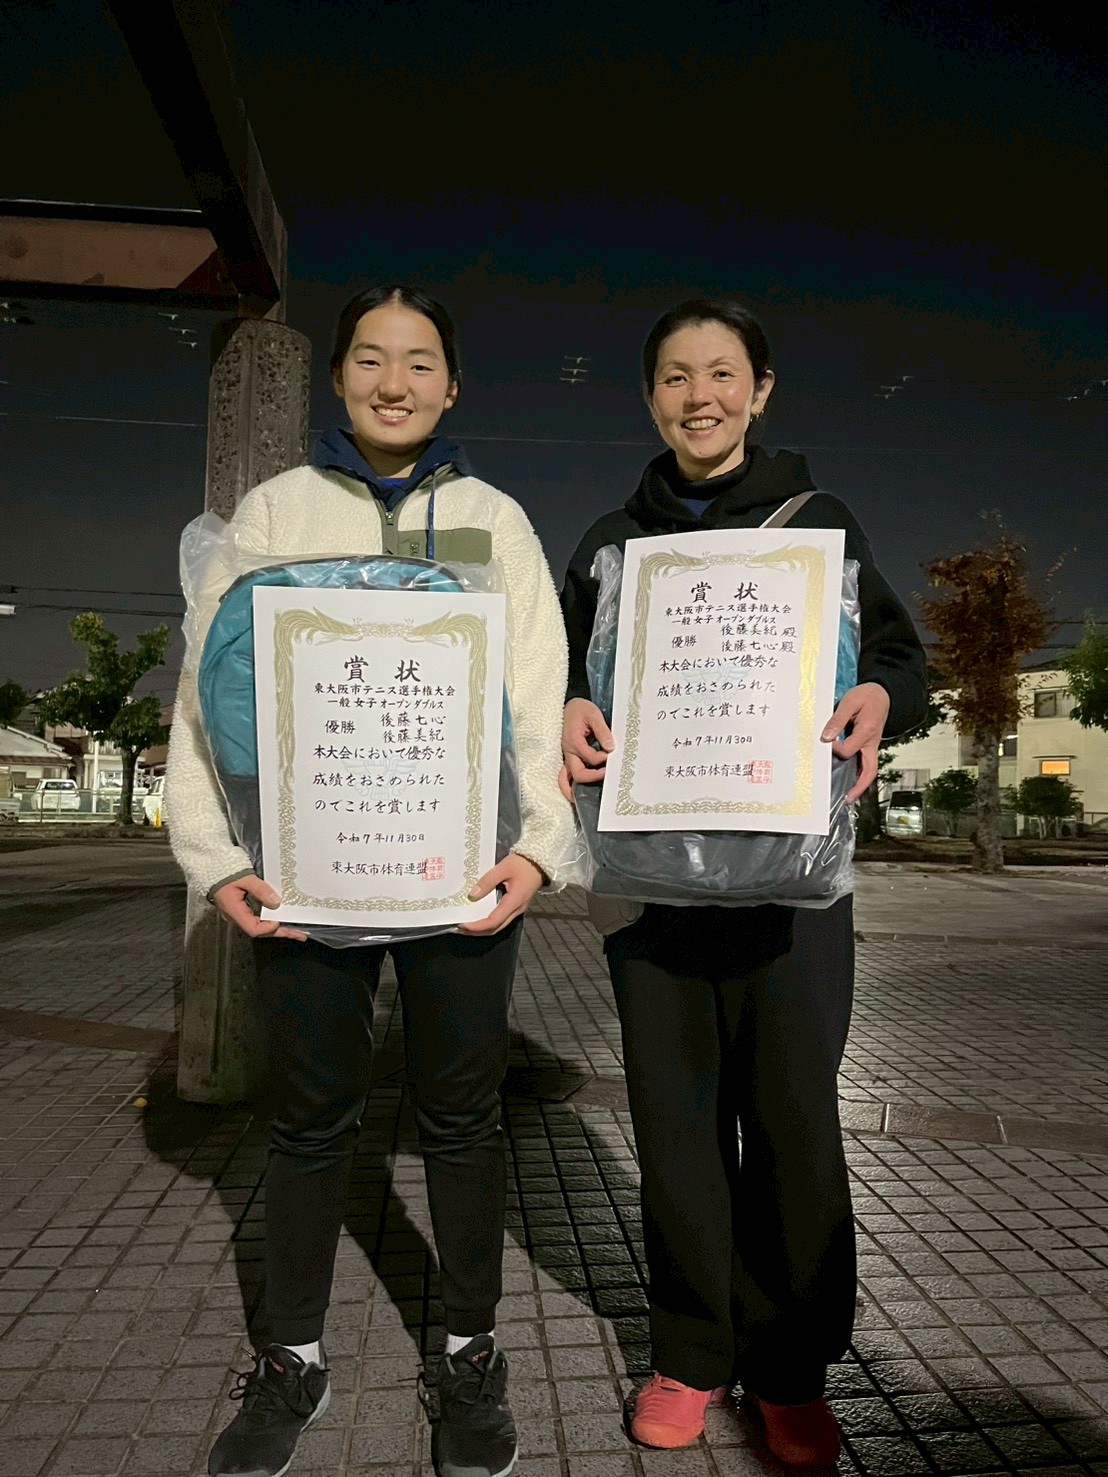 賞状
東大阪市テニス選手権大会
一般 女子 オープンダブルス
優勝 後藤七心
後藤美紀
本大会において優秀な
成績をおさめられた
のでこれを賞します
令和7年11月30日
東大阪市体育連盟
賞状
東大阪市テニス選手権大会
一般 女子 オープンダブルス
後藤美紀 殿
優勝 後藤七心 殿
本大会において優秀な
成績をおさめられた
のでこれを賞します
令和7年11月30日
東大阪市体育連盟